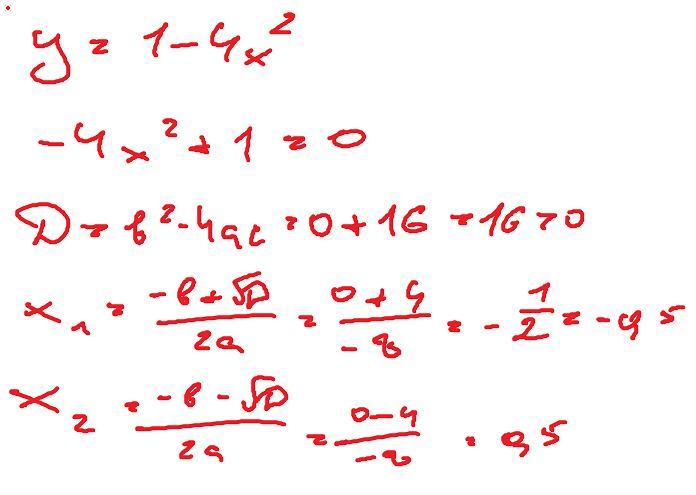 y = 1 - 4x²
-4x² + 1 = 0
D = b² - 4ac = 0 + 16 = 16 > 0
x₁ = (-b + √D)/(2a) = (0 + 4)/(-8) = -1/2 = -0,5
x₂ = (-b - √D)/(2a) = (0 - 4)/(-8) = 0,5